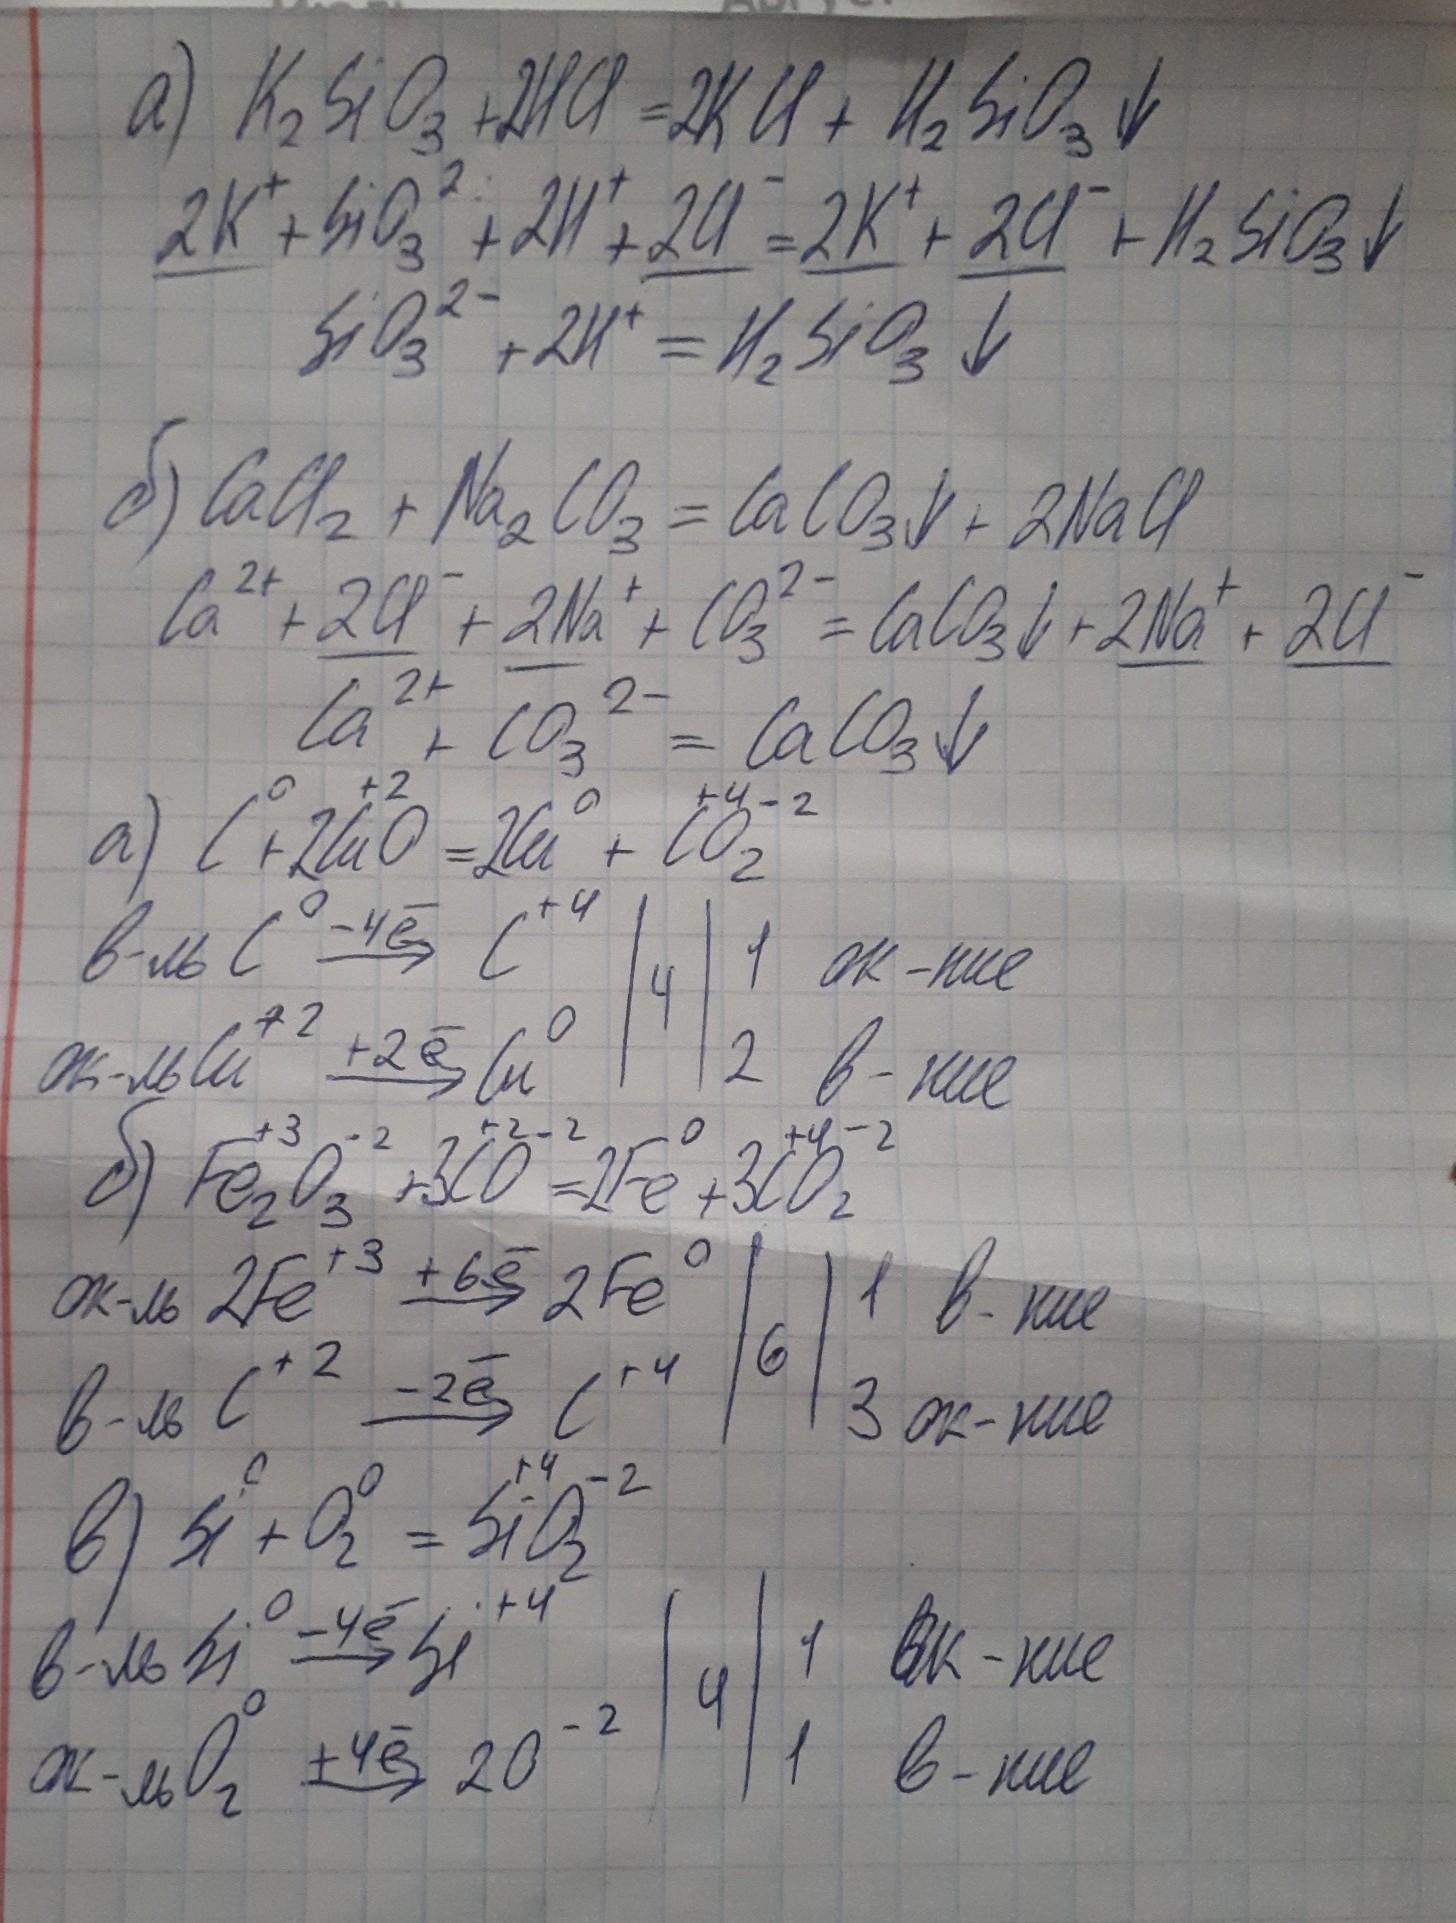 а) K₂SiO₃ + 2HCl = 2KCl + H₂SiO₃↓
2K⁺ + SiO₃²⁻ + 2H⁺ + 2Cl⁻ = 2K⁺ + 2Cl⁻ + H₂SiO₃↓
SiO₃²⁻ + 2H⁺ = H₂SiO₃↓
б) CaCl₂ + Na₂CO₃ = CaCO₃↓ + 2NaCl
Ca²⁺ + 2Cl⁻ + 2Na⁺ + CO₃²⁻ = CaCO₃↓ + 2Na⁺ + 2Cl⁻
Ca²⁺ + CO₃²⁻ = CaCO₃↓
а) C⁰ + 2Cu⁺²O = 2Cu⁰ + C⁺⁴O₂⁻²
в-ль C⁰ –4ē→ C⁺⁴ | 4 | 1 ок-ние
ок-ль Cu⁺² +2ē→ Cu⁰ | | 2 в-ние
б) Fe₂⁺³O₃⁻² + 3C⁺²O⁻² = 2Fe⁰ + 3C⁺⁴O₂⁻²
ок-ль 2Fe⁺³ +6ē→ 2Fe⁰ | 6 | 1 в-ние
в-ль C⁺² –2ē→ C⁺⁴ | | 3 ок-ние
в) Si⁰ + O₂⁰ = Si⁺⁴O₂⁻²
в-ль Si⁰ –4ē→ Si⁺⁴ | 4 | 1 ок-ние
ок-ль O₂⁰ +4ē→ 2O⁻² | | 1 в-ние